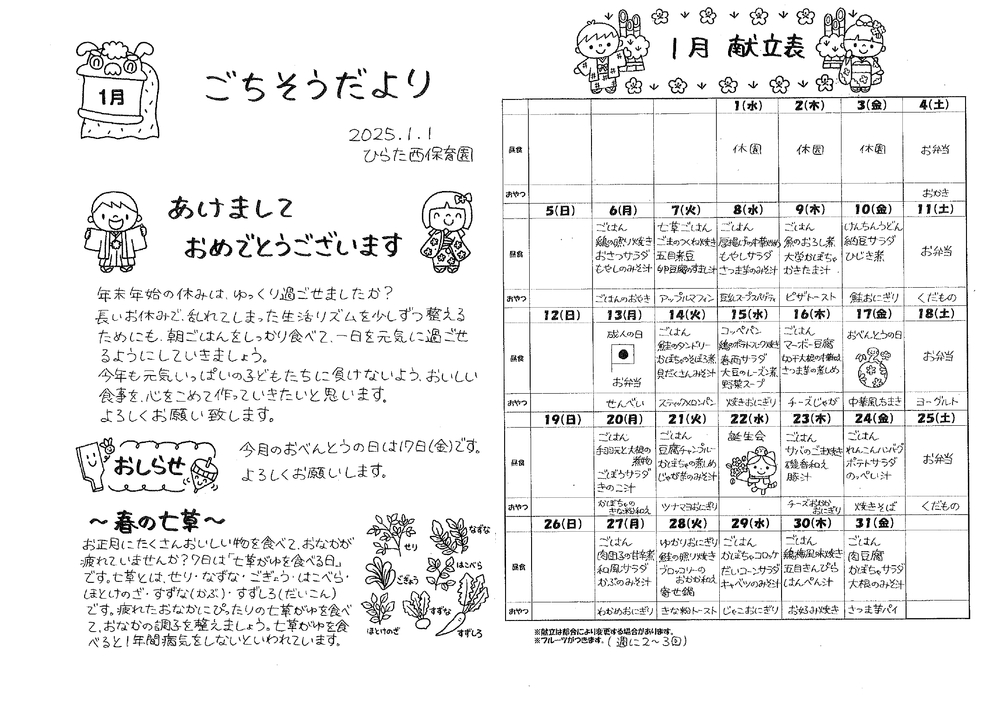 1月
ごちそうだより
2025.1.1
ひらた西保育園
あけまして
おめでとうございます
年末年始の休みは、ゆっくり過ごせましたか?
長いお休みで、乱れてしまった生活リズムを少しずつ整える
ためにも、朝ごはんをしっかり食べて、一日を元気に過ごせ
るようにしていきましょう。
今年も元気いっぱいの子どもたちに負けないよう、おいしい
食事を、心をこめて作っていきたいと思います。
よろしくお願い致します。
おしらせ
今月のおべんとうの日は17日(金)です。
よろしくお願いします。
~春の七草~
お正月にたくさんおいしい物を食べて、おなかが
疲れていませんか?7日は「七草がゆを食べる日」
です。七草とは、せり・なずな・ごぎょう・はこべら・
ほとけのざ・すずな(かぶ)・すずしろ(だいこん)
です。疲れたおなかにぴったりの七草がゆを食べ
て、おなかの調子を整えましょう。七草がゆを食
べると1年間病気をしないといわれています。
せり
なずな
ごぎょう
はこべら
ほとけのざ
すずな
すずしろ
1月 献立表
1(水) 2(木) 3(金) 4(土)
昼食
休園 休園 休園 お弁当
おやつ
おかき
5(日) 6(月) 7(火) 8(水) 9(木) 10(金) 11(土)
昼食
ごはん 七草ごはん ごはん ごはん けんちんうどん
鶏の照り焼き ごまのつくね焼き 厚揚げの中華炒め 魚のおろし煮 納豆サラダ お弁当
おさつサラダ 五目煮豆 もやしサラダ 大学かぼちゃ ひじき煮
もやしのみそ汁 卵豆腐のすまし汁 さつま芋のみそ汁 おきたま汁
おやつ
ごはんのおやき アップルマフィン 豆乳スープスパゲティ ピザトースト 鮭おにぎり くだもの
12(日) 13(月) 14(火) 15(水) 16(木) 17(金) 18(土)
昼食
成人の日 ごはん コッペパン ごはん おべんとうの日
鮭のタンドリー 鶏のポテトミルク焼き マーボー豆腐 お弁当
かぼちゃのそぼろ煮 春雨サラダ 切干大根の中華和え
お弁当 具だくさんみそ汁 大豆のレーズン煮 さつま芋の煮しめ
野菜スープ
おやつ
せんべい スティックメロンパン 焼きおにぎり チーズじゃが 中華風ちまき ヨーグルト
19(日) 20(月) 21(火) 22(水) 23(木) 24(金) 25(土)
昼食
ごはん ごはん 誕生会 ごはん ごはん
手羽元と大根の 豆腐チャンプルー サバのごま焼き れんこんハンバーグ お弁当
煮物 かぼちゃの煮しめ 磯香和え ポテトサラダ
ごぼうサラダ じゃが芋のみそ汁 豚汁 のっぺい汁
きのこ汁
おやつ
かぼちゃの
きな粉和え ツナマヨおにぎり チーズおかか
おにぎり 焼きそば くだもの
26(日) 27(月) 28(火) 29(水) 30(木) 31(金)
昼食
ごはん ゆかりおにぎり ごはん ごはん ごはん
肉団子の甘辛煮 鮭の照り焼き かぼちゃコロッケ 鶏梅風味焼き 肉豆腐
和風サラダ ブロッコリーの だいコーンサラダ 五目きんぴら かぼちゃサラダ
かぶのみそ汁 おかか和え キャベツのみそ汁 はんぺん汁 大根のみそ汁
寄せ鍋
おやつ
わかめおにぎり きな粉トースト じゃこおにぎり お好み焼き さつま芋パイ
※献立は都合により変更する場合があります。
※フルーツがつきます。(週に2~3回)